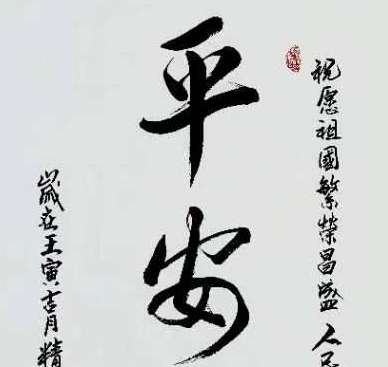 祝愿祖國繁荣昌盛人民
平安
歲在壬寅吉月精